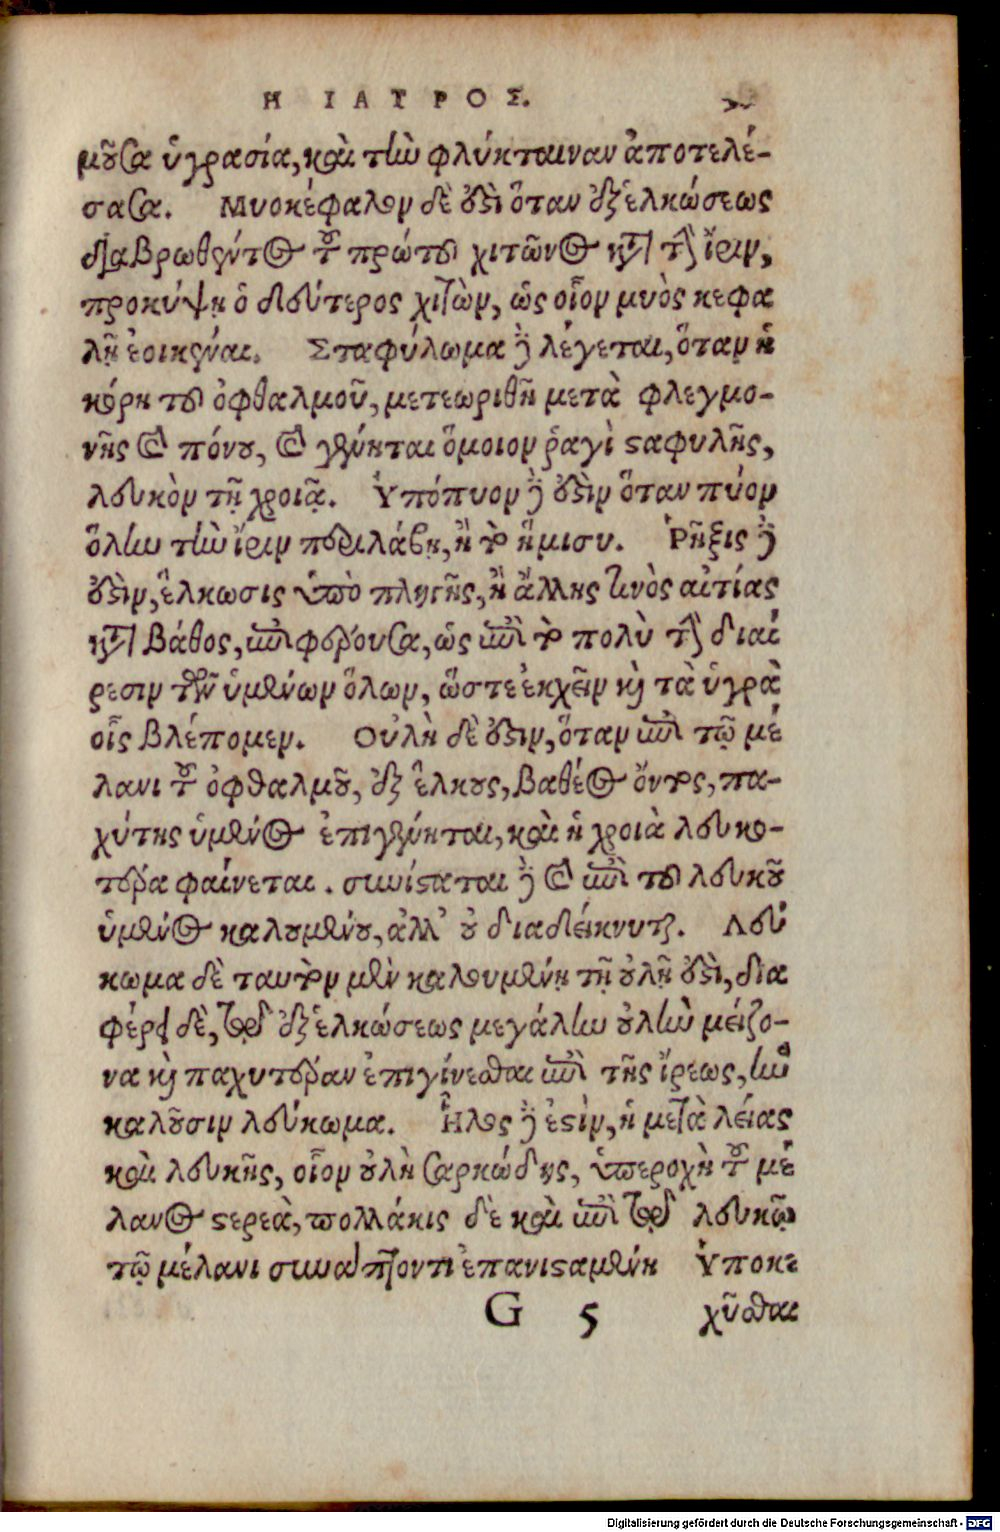 Η ΙΑΤΡΟΣ.
μοῦσα ὑγρασία, καὶ τὴν φλύκταιναν ἀποτελέ-
σασα. Μυοκέφαλον δὲ ὅξιν ὅταν ἐξ ἑλκώσεως
διαβρωθέντος τοῦ πρώτου χιτῶνος κατὰ τὴν ἴριν,
προκύψῃ ὁ δεύτερος χιτὼν, ὡς οἷον μυὸς κεφα
λῇ ἐοικέναι. Σταφύλωμα δὲ λέγεται, ὅταν ἡ
κόρη του ὀφθαλμοῦ, μετεωριθῇ μετὰ φλεγμο-
νῆς καὶ πόνου, καὶ γένηται ὅμοιον ῥαγὶ σταφυλῆς,
λευκὸν τῇ χροιᾷ. Ὑπόπυον δὲ ἐστὶν ὅταν πύον
ὅλην τὴν ἴριν περιλάβῃ, ἢ τὸ ἥμισυ. Ῥῆξις δὲ
ἐστὶν, ἕλκωσις ὑπὸ πληγῆς, ἢ ἄλλης τινὸς αἰτίας
κατὰ βάθος, ἐπιφέρουσα, ὡς ἐπὶ τὸ πολὺ τὴν διαί
ρεσιν τῶν ὑμένων ὅλων, ὥστε ἐκχεῖν καὶ τὰ ὑγρὰ
οἷς βλέπομεν. Οὐλὴ δὲ ἐστιν, ὅταν ἐπὶ τῷ μέ
λανι τοῦ ὀφθαλμοῦ, ἐξ ἕλκους, βαθέος ὄντος, πα-
χύτης ὑμένος ἐπιγένηται, καὶ ἡ χροιὰ λευκο-
τέρα φαίνεται. συνίσταται δὲ καὶ ἐπὶ του λευκοῦ
ὑμένος καλουμένου, ἀλλ' οὐ διαδείκνυται. Λεύ
κωμα δὲ ταυτὸν μὲν καλουμένῃ τῇ οὐλῇ ἐστὶ, δια
φέρει δὲ, τῷ ἐξ ἑλκώσεως μεγάλην οὐλὴν μείζο-
να καὶ παχυτέραν ἐπιγίνεσθαι ἐπὶ τῆς ἴρεως, ἣν
καλοῦσιν λεύκωμα. Ἧλος δὲ ἐστὶν, ἡ μετὰ λείας
καὶ λευκῆς, οἷον οὐλὴ σαρκώδης, ὑπεροχὴ τοῦ μέ
λανος στερεὰ, πολλάκις δὲ καὶ ἐπὶ τῷ λευκῷ
τῷ μέλανι συνάπτοντι ἐπανισταμένη Ὑποκε
G 5 χῦσθαι
Digitalisierung gefördert durch die Deutsche Forschungsgemeinschaft - DFG